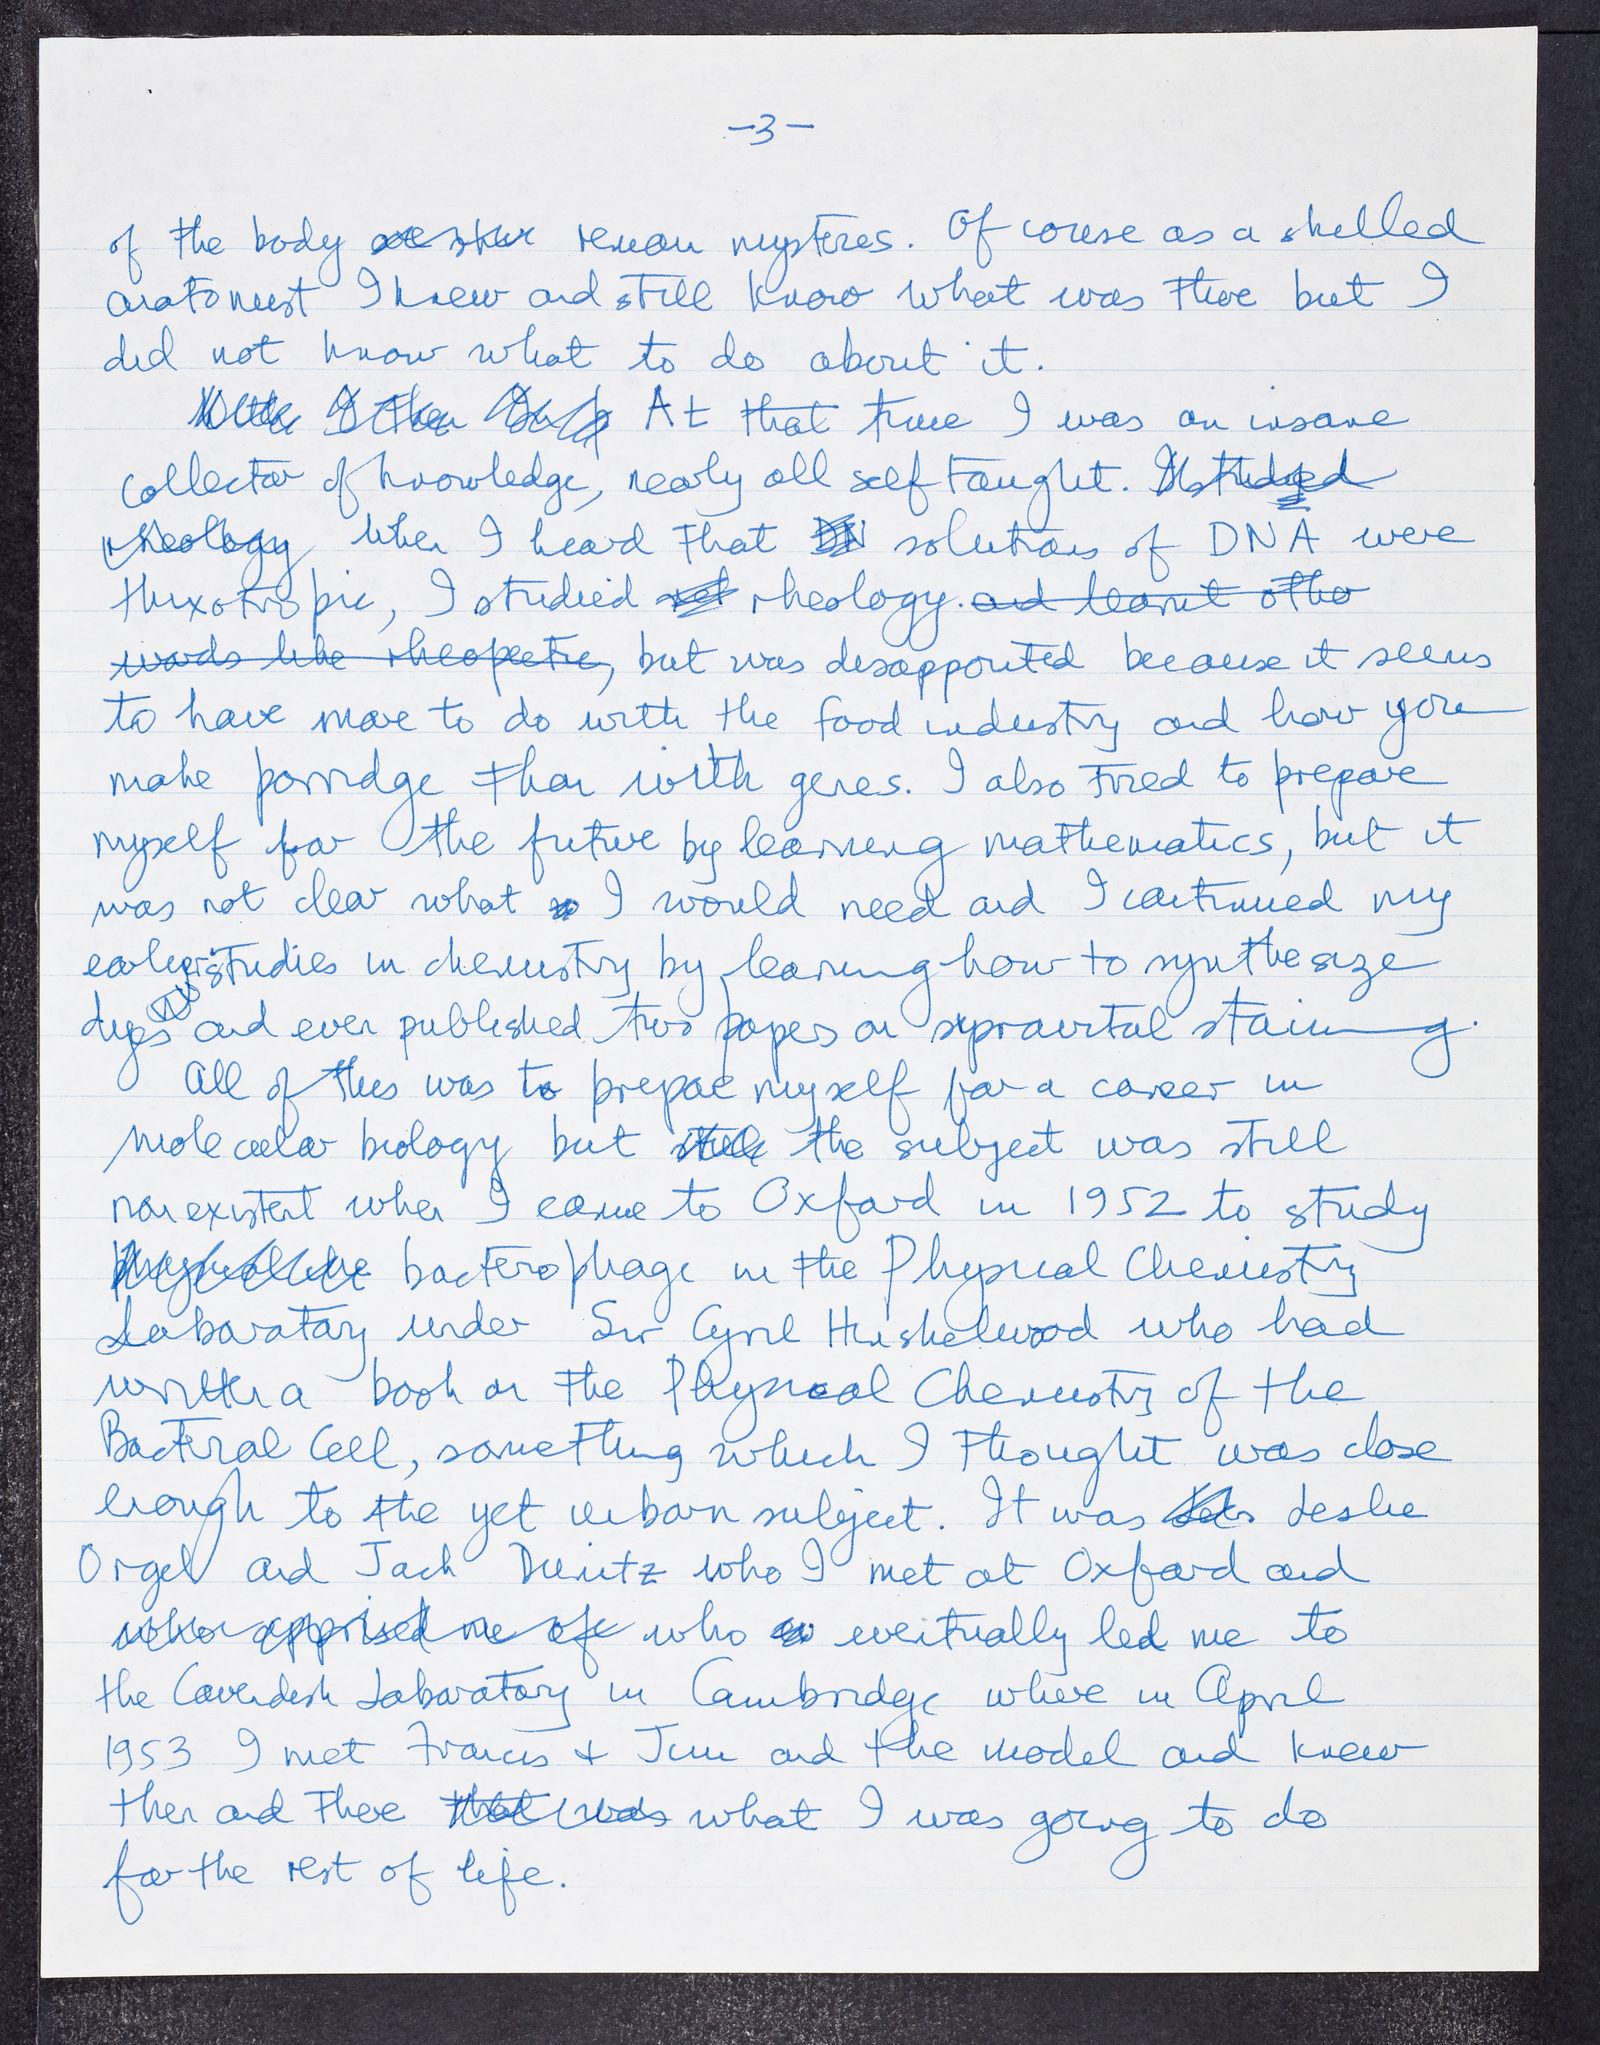 -3-
of the body are still remain mysteries. Of course as a skilled
anatomist I knew and still know what was there but I
did not know what to do about it.
At that time I was an insane
collector of knowledge, nearly all self taught. I studied
rheology when I heard that DN solutions of DNA were
thixotropic, I studied rheology. and learnt other
words like rheopectic, but was disappointed because it seems
to have more to do with the food industry and how you
make porridge than with genes. I also tried to prepare
myself for the future by learning mathematics, but it
was not clear what I would need and I continued my
earlier studies in chemistry by learning how to synthesize
dyes and even published two papers on supravital staining.
All of this was to prepare myself for a career in
molecular biology but still the subject was still
non existent when I came to Oxford in 1952 to study
bacteriophage in the Physical Chemistry
Laboratory under Sir Cyril Hinshelwood who had
written a book on the Physical Chemistry of the
Bacterial Cell, something which I thought was close
enough to the yet unborn subject. It was Leslie
Orgel and Jack Dunitz who I met at Oxford and
who apprised me of who eventually led me to
the Cavendish Laboratory in Cambridge where in April
1953 I met Francis + Jim and the model and knew
then and there that was what I was going to do
for the rest of life.